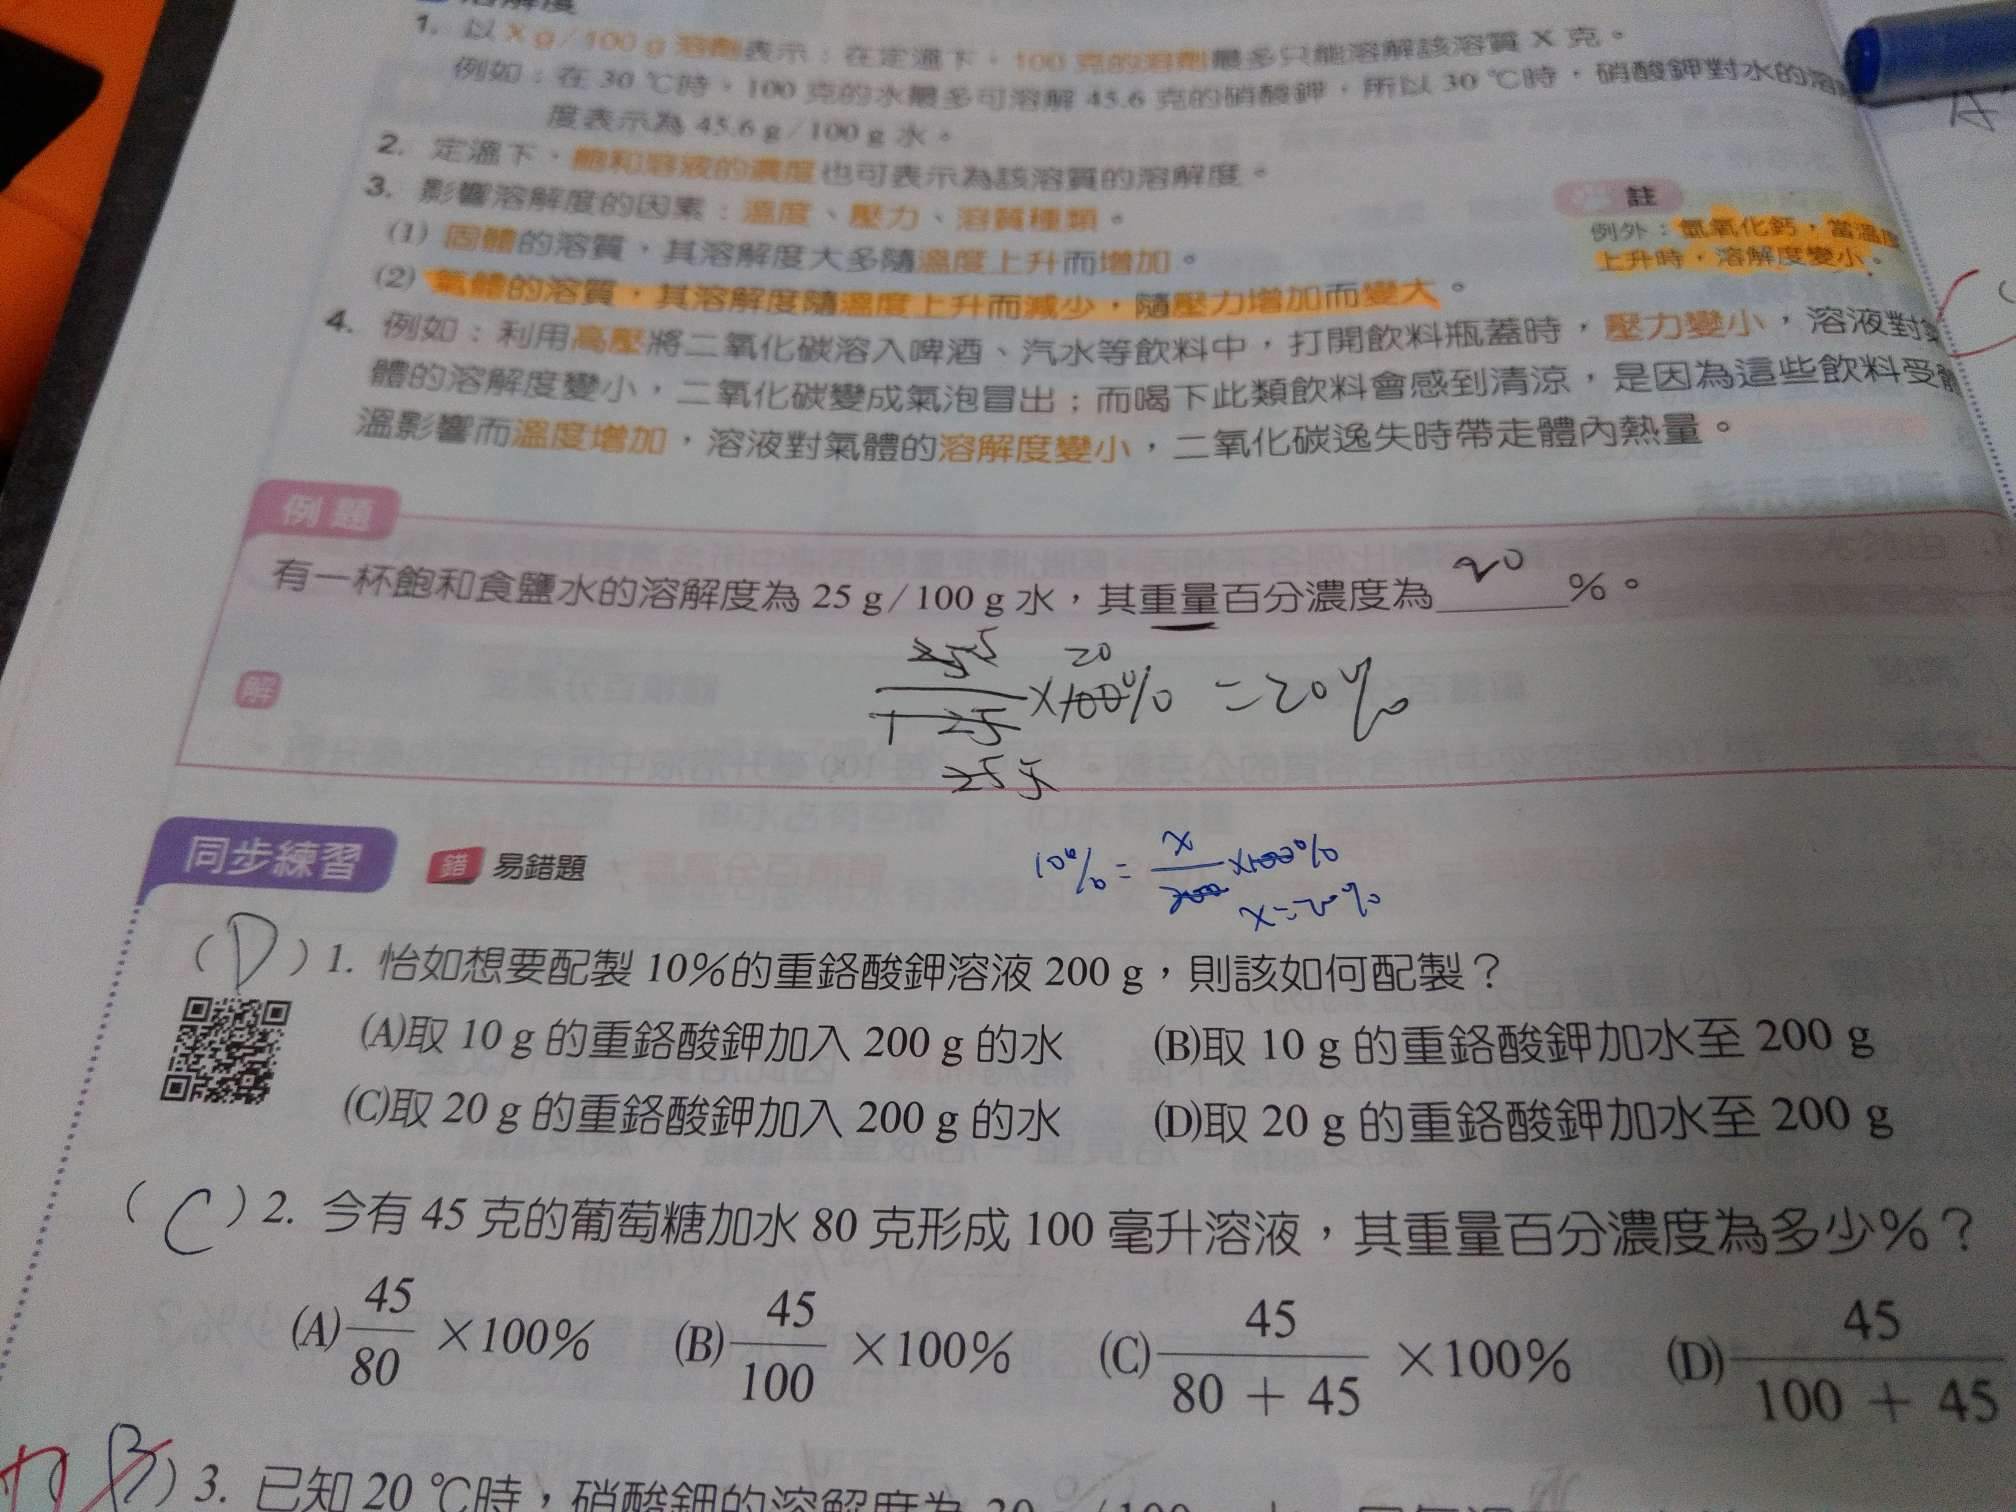 溶解度
1. 以 X g/100 g 溶劑表示：在定溫下，100 克的溶劑最多只能溶解該溶質 X 克。
例如：在 30 ℃時，100 克的水最多可溶解 45.6 克的硝酸鉀，所以 30 ℃時，硝酸鉀對水的溶
度表示為 45.6 g/100 g 水。
2. 定溫下，飽和溶液的濃度也可表示為該溶質的溶解度。
3. 影響溶解度的因素：溫度、壓力、溶質種類。
(1) 固體的溶質，其溶解度大多隨溫度上升而增加。
(2) 氣體的溶質，其溶解度隨溫度上升而減少，隨壓力增加而變大。
註
例外：氫氧化鈣，當溫度
上升時，溶解度變小。
4. 例如：利用高壓將二氧化碳溶入啤酒、汽水等飲料中，打開飲料瓶蓋時，壓力變小，溶液對氣
體的溶解度變小，二氧化碳變成氣泡冒出；而喝下此類飲料會感到清涼，是因為這些飲料受體
溫影響而溫度增加，溶液對氣體的溶解度變小，二氧化碳逸失時帶走體內熱量。
例題
有一杯飽和食鹽水的溶解度為 25 g/100 g 水，其重量百分濃度為 20 %。
解
20
×100% =20%
同步練習 錯 易錯題
10% = X/200 ×100%
X=20%
( D ) 1. 怡如想要配製 10%的重鉻酸鉀溶液 200 g，則該如何配製？
(A)取 10 g 的重鉻酸鉀加入 200 g 的水 (B)取 10 g 的重鉻酸鉀加水至 200 g
(C)取 20 g 的重鉻酸鉀加入 200 g 的水 (D)取 20 g 的重鉻酸鉀加水至 200 g
( C ) 2. 今有 45 克的葡萄糖加水 80 克形成 100 毫升溶液，其重量百分濃度為多少%？
(A) 45/80 ×100% (B) 45/100 ×100% (C) 45/(80 + 45) ×100% (D) 45/(100 + 45)
B ) 3. 已知 20 ℃時，硝酸鉀的溶解度為